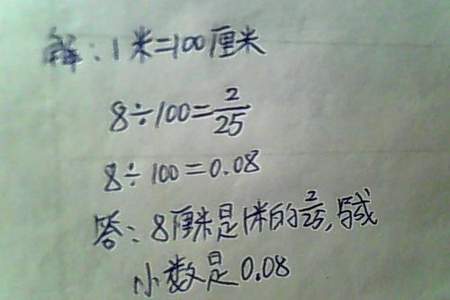 解：1米=100厘米
8÷100=2/25
8÷100=0.08
答：8厘米是1米的2/25，写成
小数是0.08